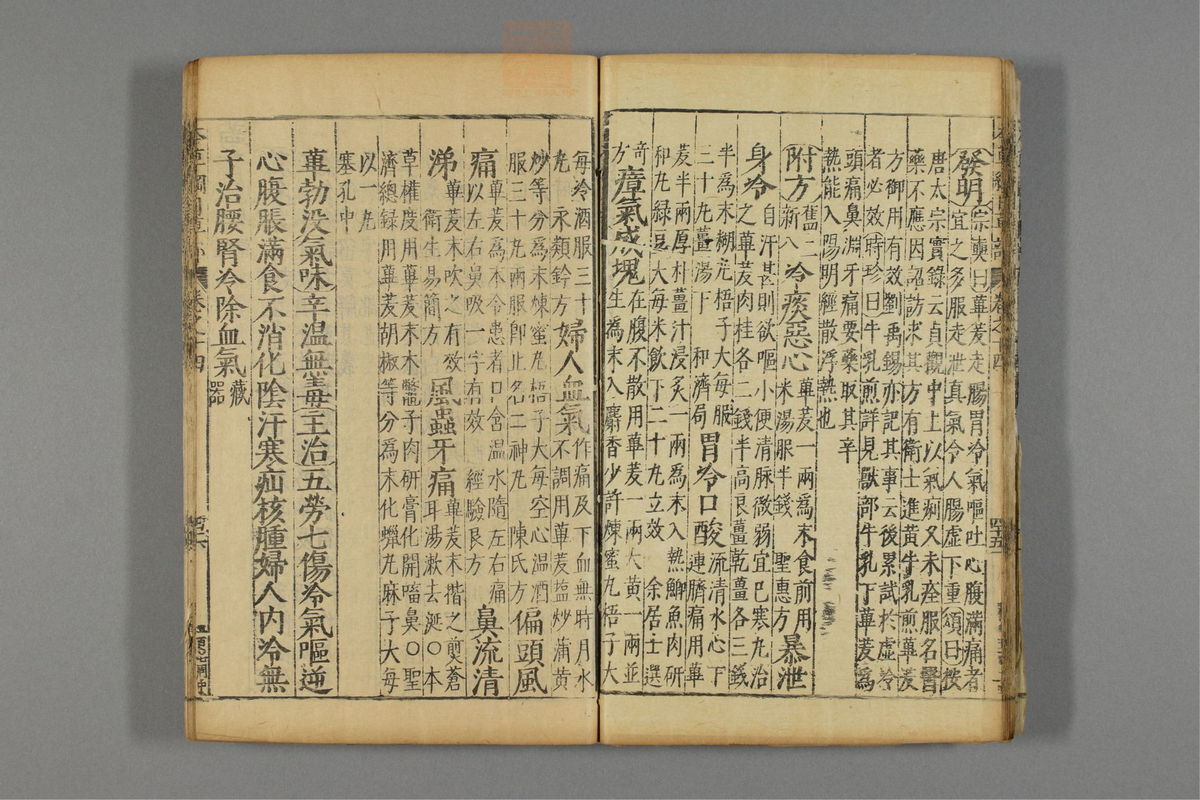 發明宗奭曰蓽茇走腸胃冷氣嘔吐心腹滿痛者
宜之多服走泄真氣令人腸虛下重頌曰按
唐太宗實錄云貞觀中上以氣痢久未痊服名醫
藥不應因詔訪求其方有衛士進黃牛乳煎蓽茇
方御用有效劉禹錫亦記其事云後累試於虛冷
者必效時珍曰牛乳煎詳見獸部牛乳下蓽茇爲
頭痛鼻淵牙痛要藥取其辛
熱能入陽明經散浮熱也
附方舊二新八冷痰惡心蓽茇一兩爲末食前用米湯服半錢 聖惠方暴泄
身冷自汗甚則欲嘔小便清脉微弱宜已寒丸治
之蓽茇肉桂各二錢半高良薑乾薑各三錢
半爲末糊丸梧子大每服三十丸薑湯下 和濟局胃冷口酸流清水心下連臍痛用蓽
茇半兩厚朴薑汁浸炙一兩爲末入熱鯽魚肉研
和丸緑豆大每米飲下二十丸立效 余居士選
奇方瘴氣成塊在腹不散用蓽茇一兩大黃一兩並
生爲末入麝香少許煉蜜丸梧子大
每冷酒服三十丸 永類鈐方婦人血氣作痛及下血無時月水不調用蓽茇鹽炒蒲黃
炒等分爲末煉蜜丸梧子大每空心温酒
服三十丸兩服即止名二神丸 陳氏方偏頭風
痛蓽茇爲末令患者口含温水隨左右痛
以左右鼻吸一字有效 經驗良方鼻流清
涕蓽茇末吹之有效 衛生易簡方風蟲牙痛蓽茇末揩之煎蒼耳湯漱去涎○本
草權度用蓽茇末木鱉子肉研膏化開㗜鼻○聖
濟總録用蓽茇胡椒等分爲末化蠟丸麻子大每
以一丸
塞孔中
蓽勃没氣味辛温無毒主治五勞七傷冷氣嘔逆
心腹脹滿食不消化陰汗寒疝核腫婦人内冷無
子治腰腎冷除血氣藏器